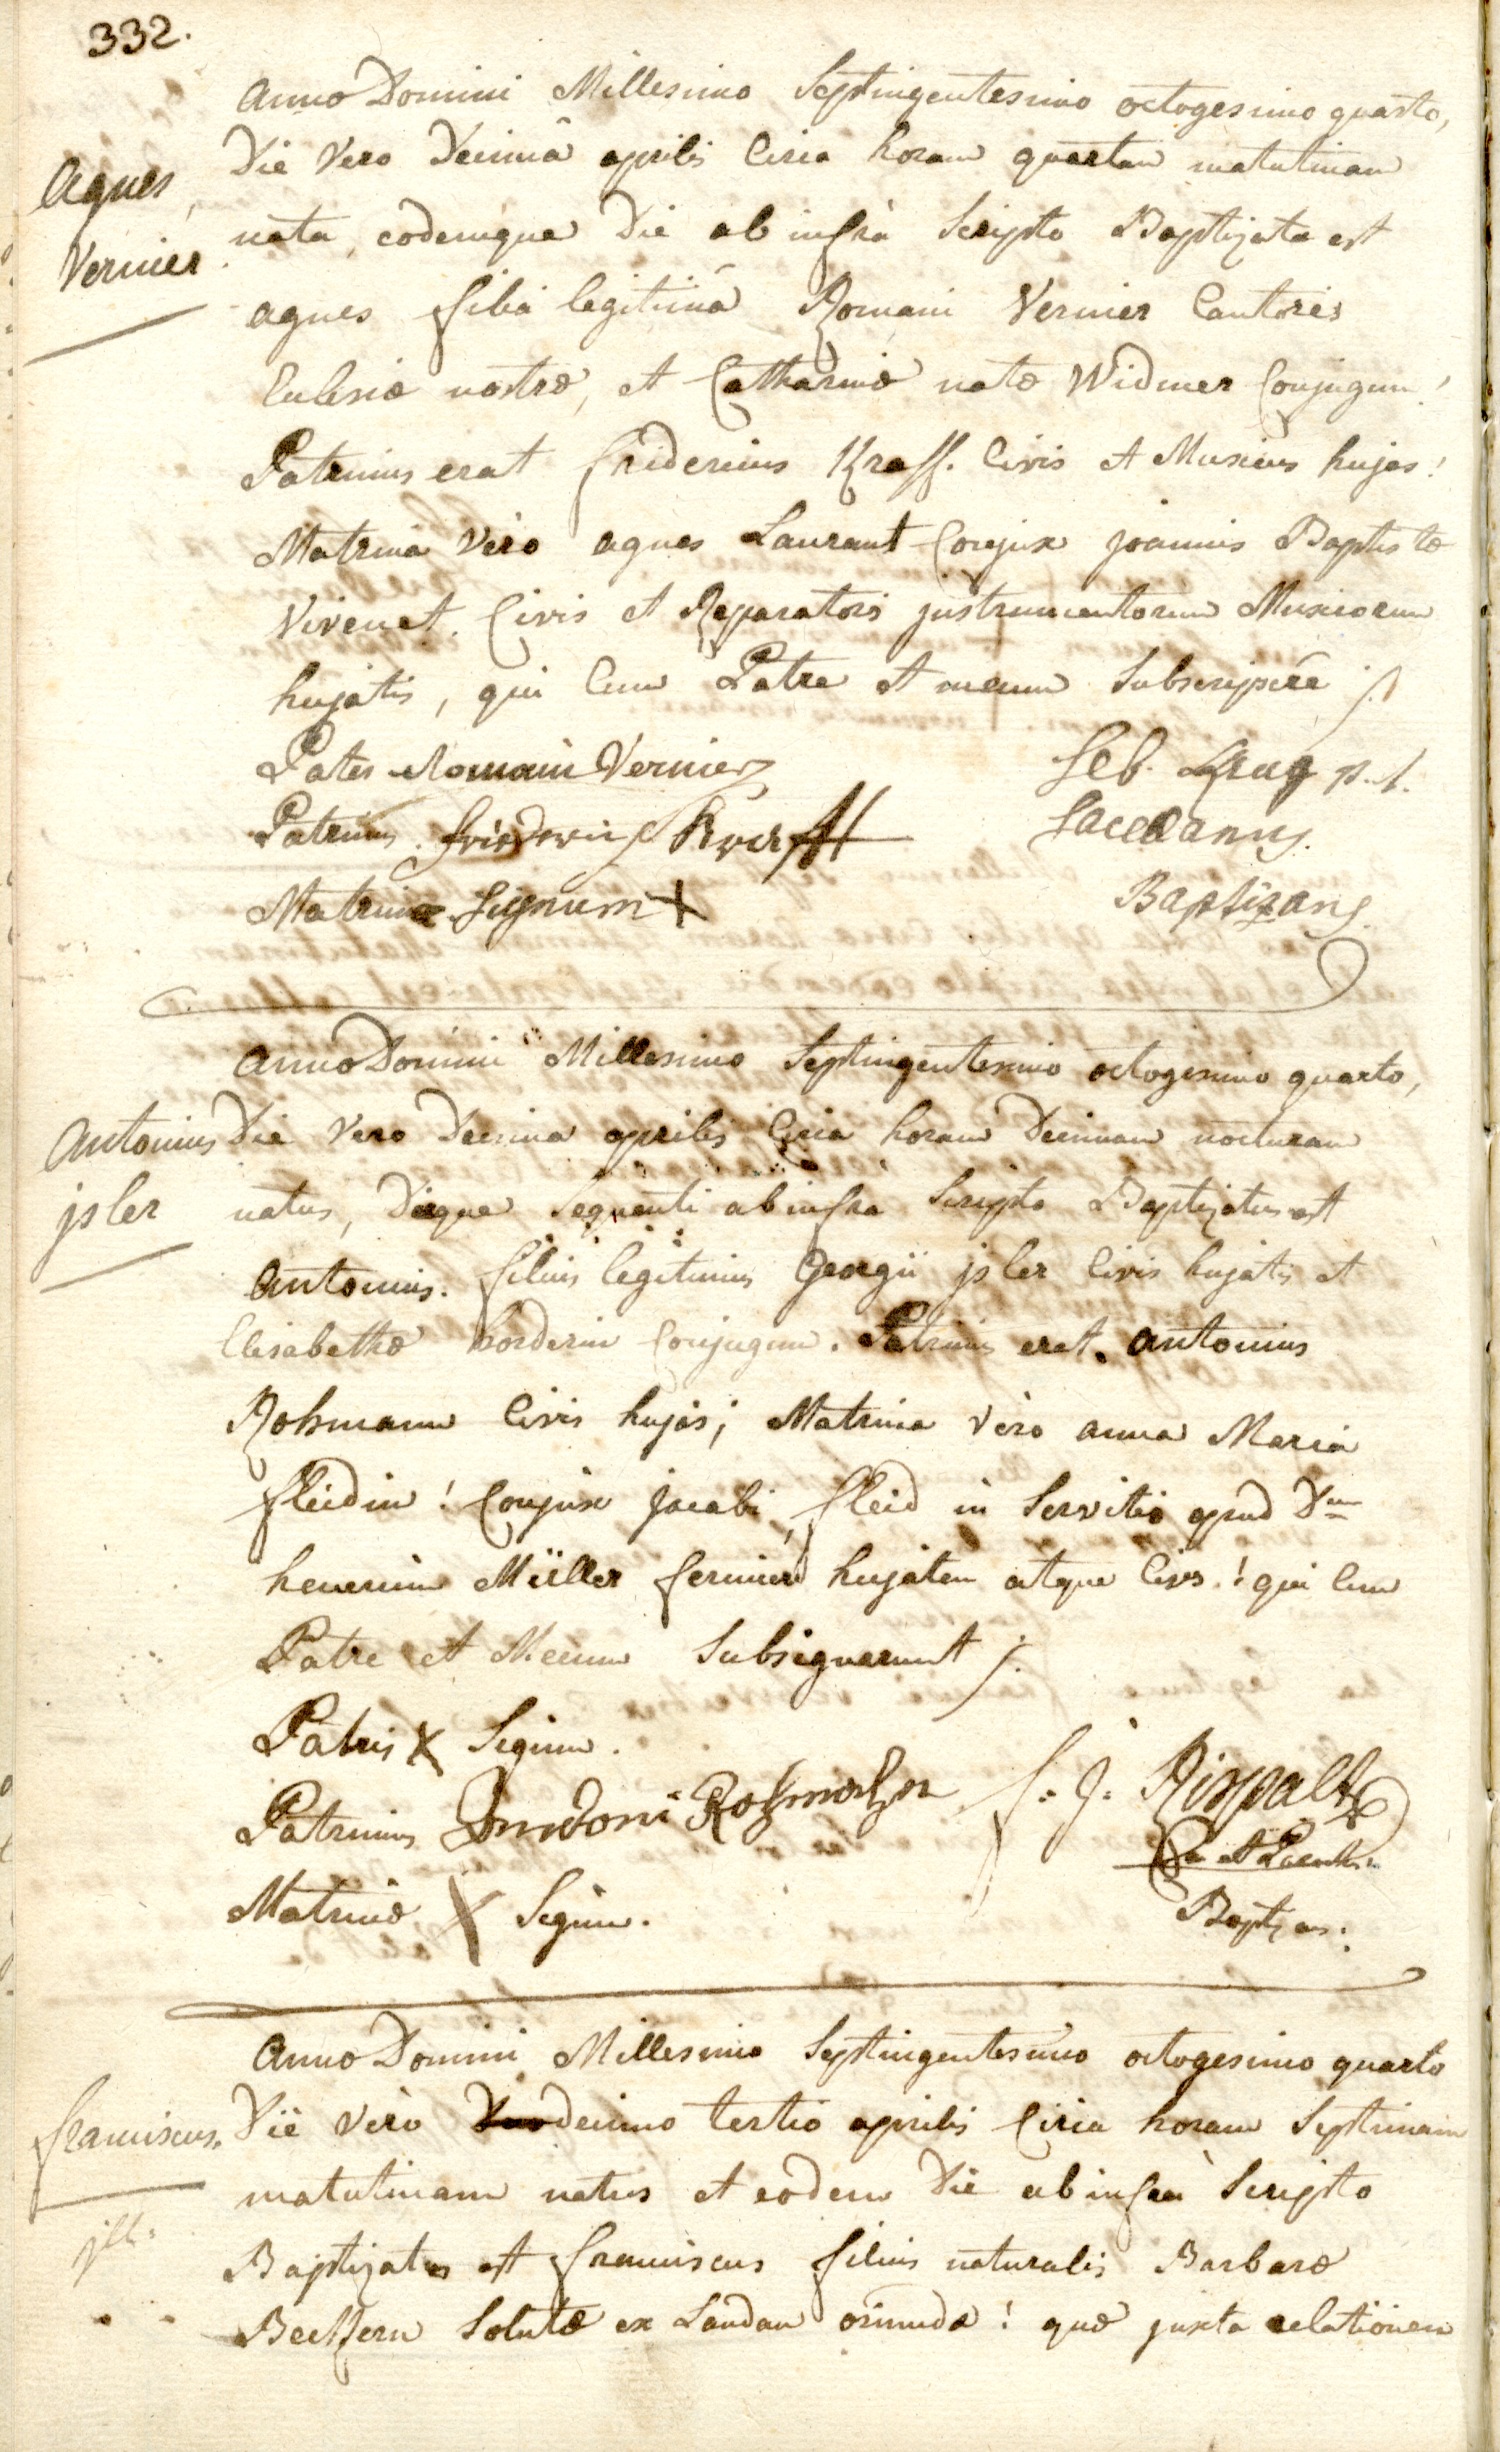 332.
Anno Domini Millesimo Septingentesimo octogesimo quarto,
Agnes Vernier
Die Vero Decimâ aprilis Circa horam quartam matutinam
nata, eodemque Die ab infrà Scripto Baptizata est
agnes filia legitimâ Romani Vernier Cantoris
Eclesiæ nostræ, et Catharinæ natæ Widmer Conjugum!
Patrinus erat fridericus Kraff. Civis et Musicus hujas!
Matrina Vèro agnes Laurant Conjux joannis Baptistæ
Vivenet. Civis et Reparatoris justrumentorum Musicorum
hujatis, qui Cum Patre et mecum Subscripsêre j.
Pater Romain Vernier
Seb. Krug p. t.
Patrinus. Friedrich Krafft
Sacellanus.
Matrinæ Signum X
Baptizans.
Anno Domini Millesimo Septingentesimo octogesimo quarto,
Antonius jsler
Die Vero Decima aprilis Circa horam Decimam nocturnam
natus, Dieque Sequenti ab infrà Scripto Baptizatus est
Antonius. filius legitimus Georgii jsler Civis hujatis et
Elisabethæ Korderin Conjugum. Patrinus erat. Antonius
Rohmann Civis hujas; Matrina vèro anna Maria
fleidin! Conjux jacobi fleid in Servitio apud Dnum
henericum Müller fermier hujatem atque Cives.! qui Cum
Patre et Mecum Subsignarunt j.
Patris X Signum.
Patrinus Andoni Rohmahn
f. J. Rispalt
Matrinæ X Signum.
Baptizans.
Anno Domini Millesimo Septingentesimo octogesimo quarto
franciscus.
jll.
Diè Vèrò decimo tertio aprilis Circa horam Septimam
matutinam natus et eodem Die ab infrà Scripto
Baptizatus est franciscus filius naturalis Barbaræ
Solutæ ex Landau oriundæ! quæ juxta relationem